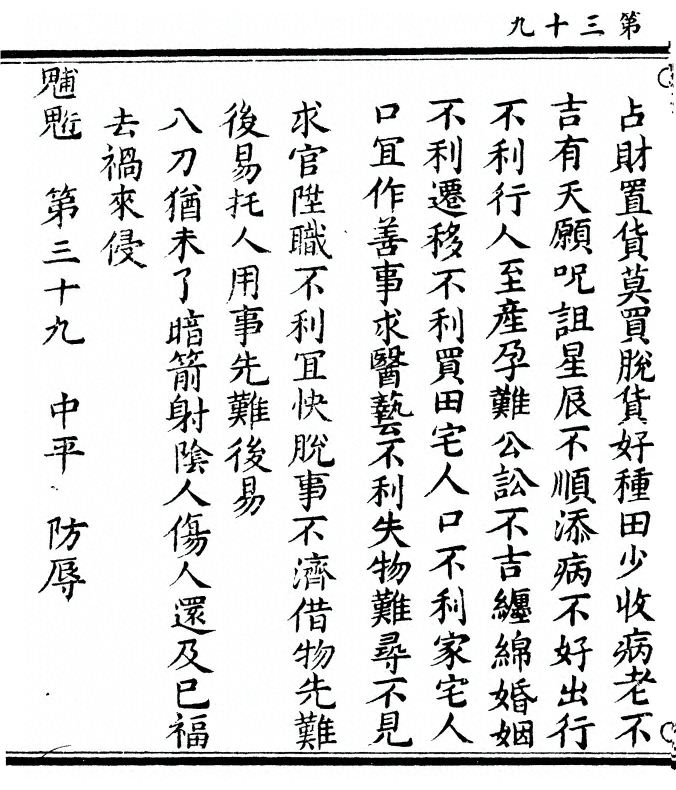 第三十九
占財置貨莫買脫貨好種田少收病老不
吉有天願呪詛星辰不順添病不好出行
不利行人至產孕難公訟不吉纏綿婚姻
不利遷移不利買田宅人口不利家宅人
口冝作善事求醫藝不利失物難尋不見
求官陞職不利冝快脫事不濟借物先難
後易托人用事先難後易
八刀猶未了暗箭射陰人傷人還及已福
去禍來侵
第三十九 中平 防辱